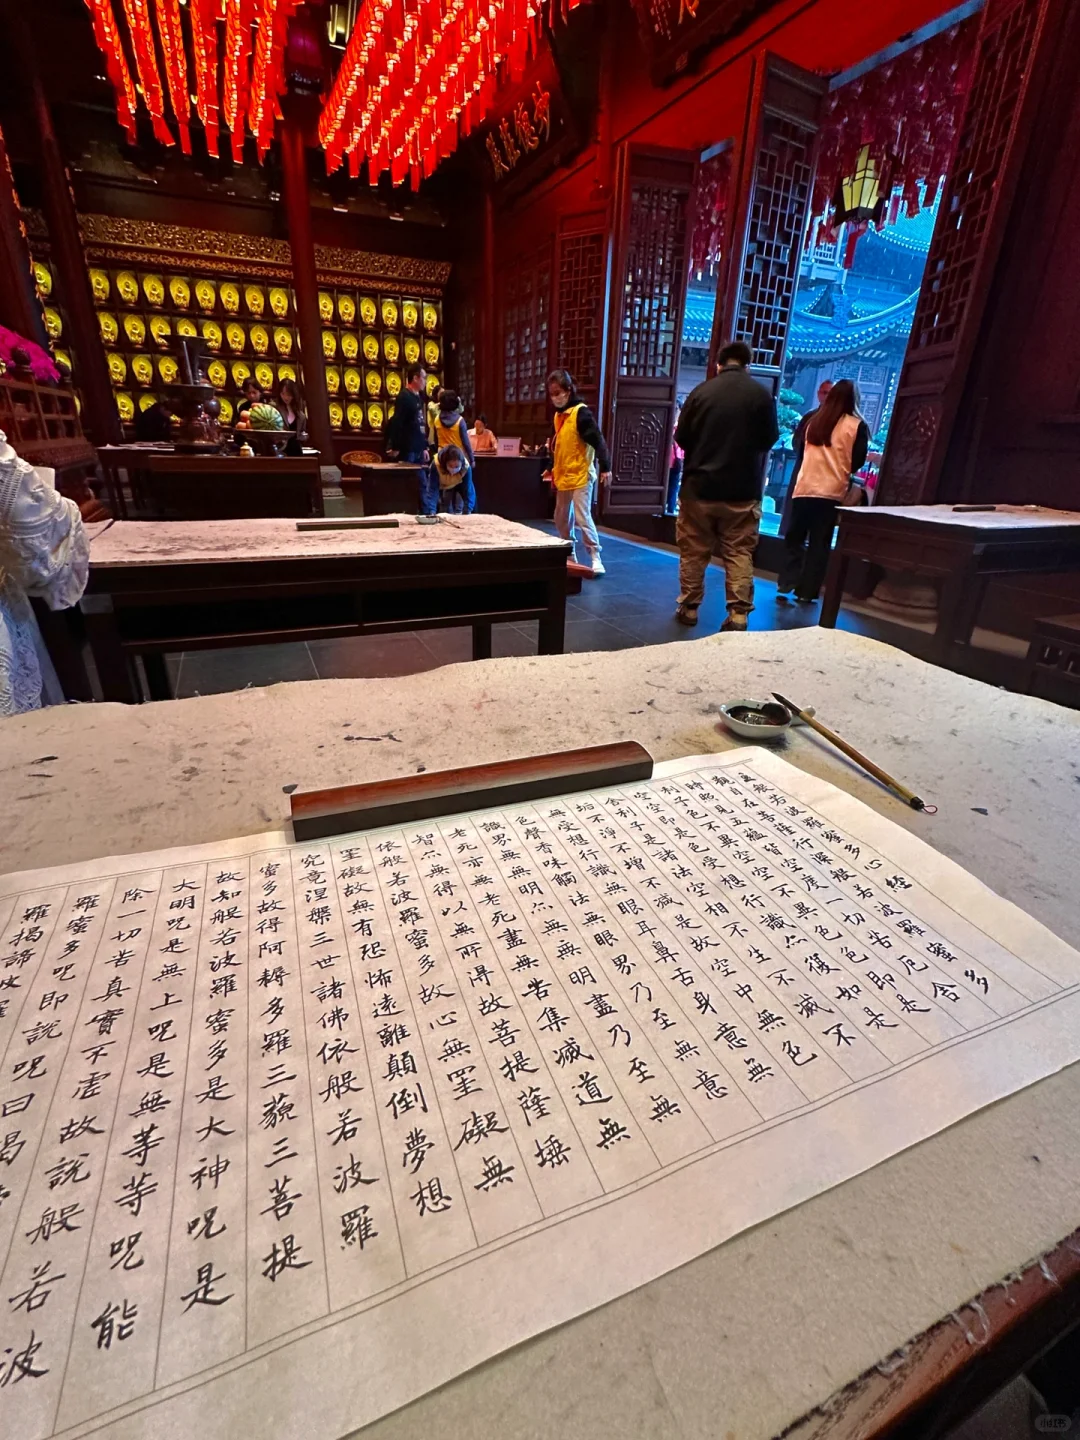 般若波羅蜜多心經
觀自在菩薩行深般若波羅蜜多
時照見五蘊皆空度一切苦厄舍
利子色不異空空不異色色即是
空空即是色受想行識亦復如是
舍利子是諸法空相不生不滅不
垢不淨不增不減是故空中無色
無受想行識無眼耳鼻舌身意無
色聲香味觸法無眼界乃至無意
識界無無明亦無無明盡乃至無
老死亦無老死盡無苦集滅道無
智亦無得以無所得故菩提薩埵
依般若波羅蜜多故心無罣礙無
罣礙故無有恐怖遠離顛倒夢想
究竟涅槃三世諸佛依般若波羅
蜜多故得阿耨多羅三藐三菩提
故知般若波羅蜜多是大神呪是
大明呪是無上呪是無等等呪能
除一切苦真實不虛故說般若波
羅蜜多呪即說呪曰揭
羅揭諦波羅
小红书